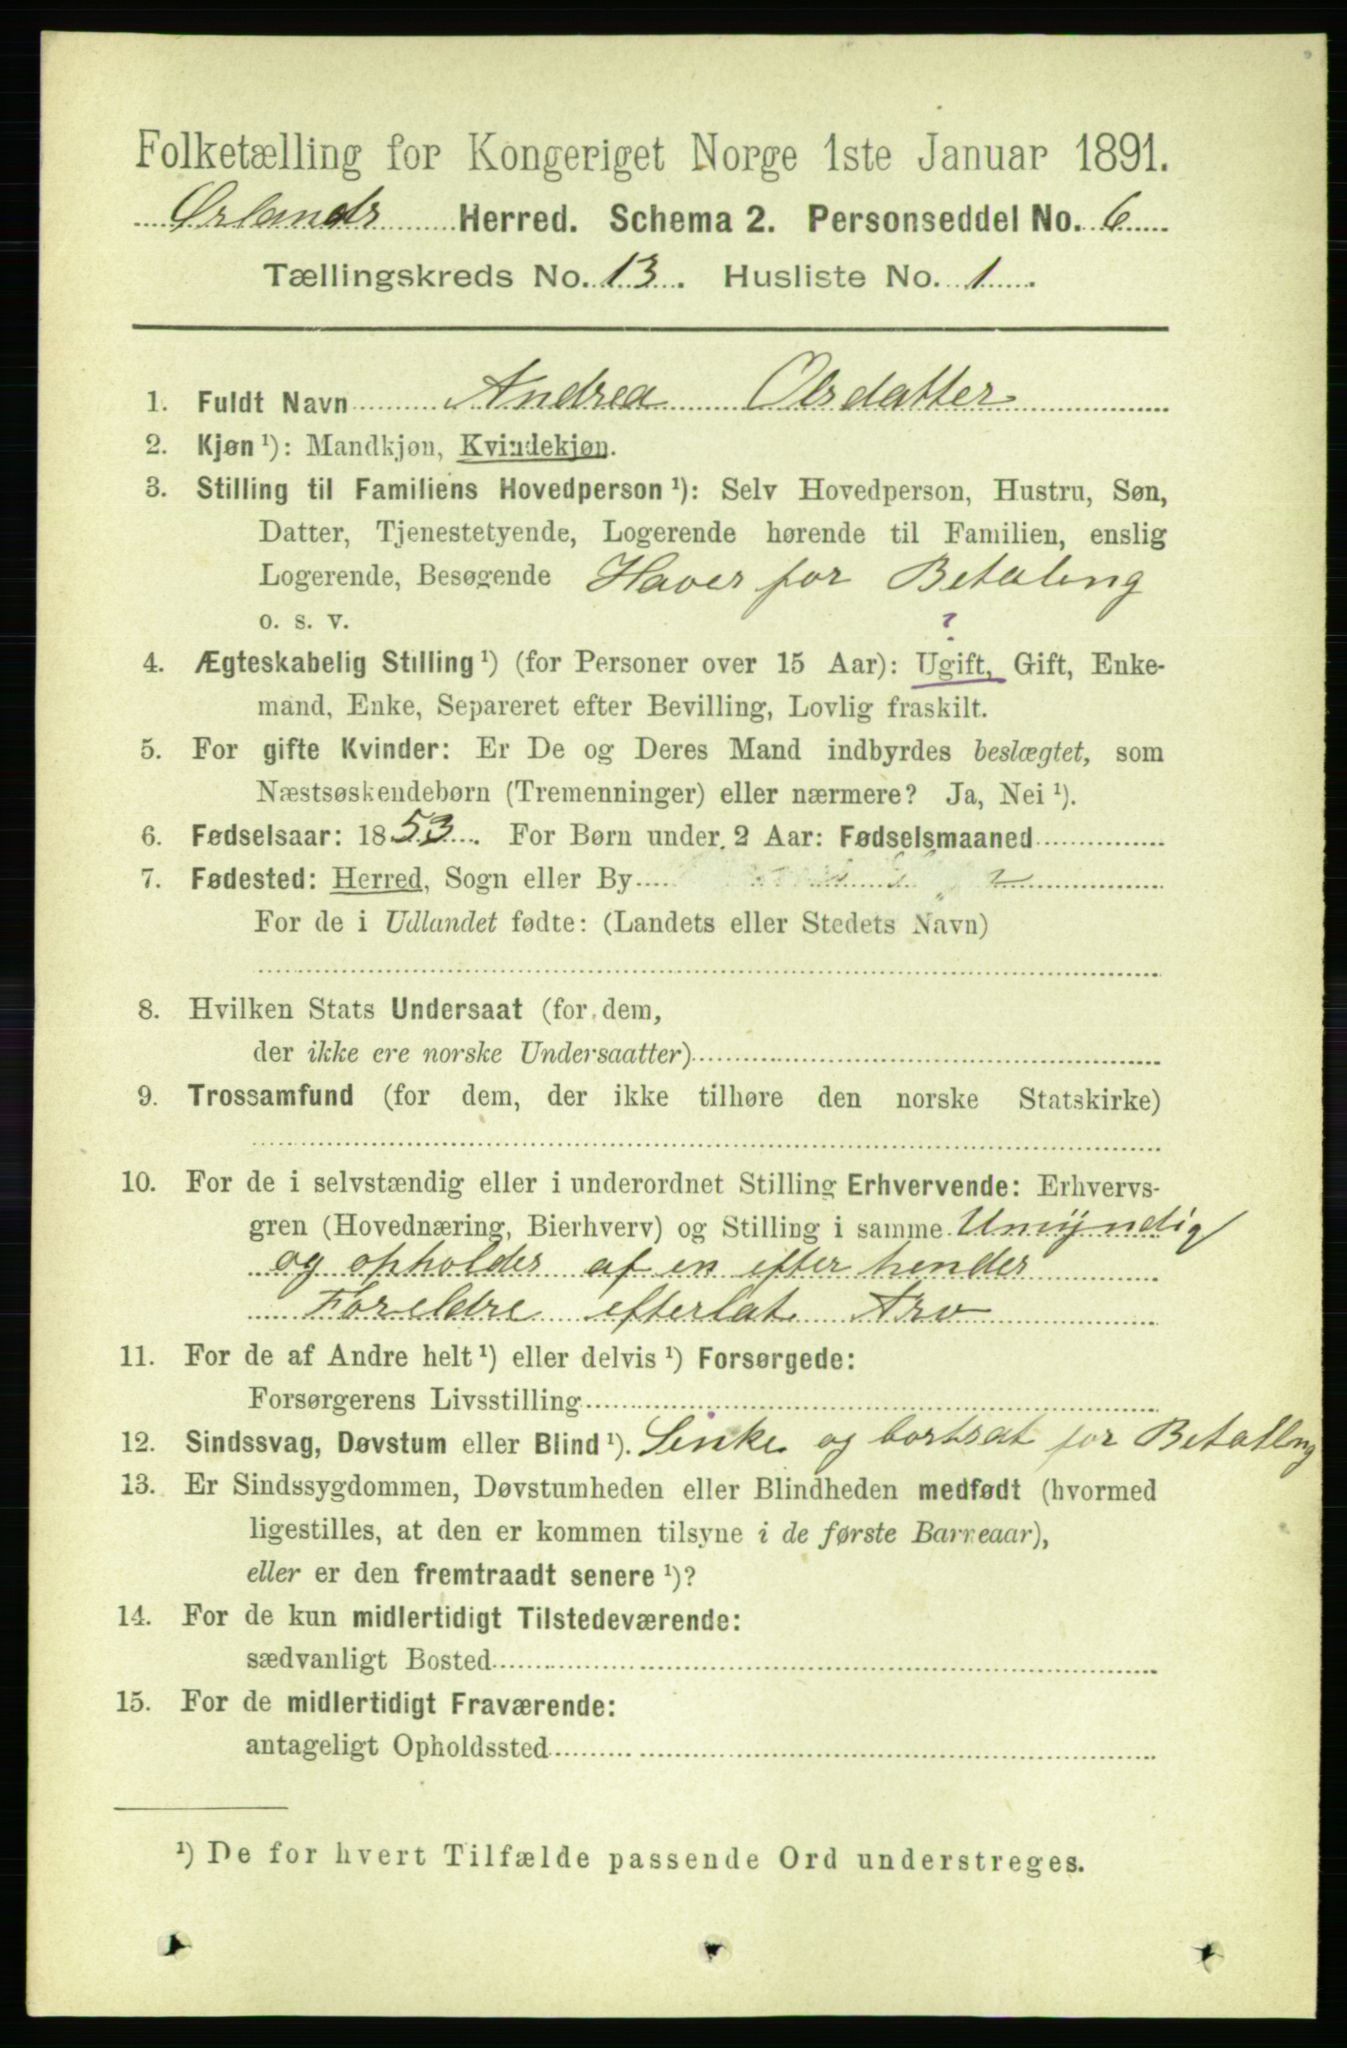 Folketælling for Kongeriget Norge 1ste Januar 1891.
Ørlands Herred. Schema 2. Personseddel No. 6
Tællingskreds No. 13. Husliste No. 1
1. Fuldt Navn Andrea Olsdatter
2. Kjøn¹): Mandkjøn, Kvindekjøn.
3. Stilling til Familiens Hovedperson¹): Selv Hovedperson, Hustru, Søn,
Datter, Tjenestetyende, Logerende hørende til Familien, enslig
Logerende, Besøgende Haves for Betaling
o. s. v. ?
4. Ægteskabelig Stilling¹) (for Personer over 15 Aar): Ugift, Gift, Enke-
mand, Enke, Separeret efter Bevilling, Lovlig fraskilt.
5. For gifte Kvinder: Er De og Deres Mand indbyrdes beslægtet, som
Næstsøskendebørn (Tremenninger) eller nærmere? Ja, Nei¹).
6. Fødselsaar: 1853. For Børn under 2 Aar: Fødselsmaaned
7. Fødested: Herred, Sogn eller By
For de i Udlandet fødte: (Landets eller Stedets Navn)
8. Hvilken Stats Undersaat (for dem,
der ikke ere norske Undersaatter)
9. Trossamfund (for dem, der ikke tilhøre den norske Statskirke)
10. For de i selvstændig eller i underordnet Stilling Erhvervende: Erhvervs-
gren (Hovednæring, Bierhverv) og Stilling i samme Umyndig
og opholdes af en efter hendes
Foreldre efterlat Arv
11. For de af Andre helt¹) eller delvis¹) Forsørgede:
Forsørgerens Livsstilling
12. Sindssvag, Døvstum eller Blind¹). Sinke og bortsat for Betalling
13. Er Sindssygdommen, Døvstumheden eller Blindheden medfødt (hvormed
ligestilles, at den er kommen tilsyne i de første Barneaar),
eller er den fremtraadt senere¹)?
14. For de kun midlertidigt Tilstedeværende:
sædvanligt Bosted
15. For de midlertidigt Fraværende:
antageligt Opholdssted
¹) De for hvert Tilfælde passende Ord understreges.